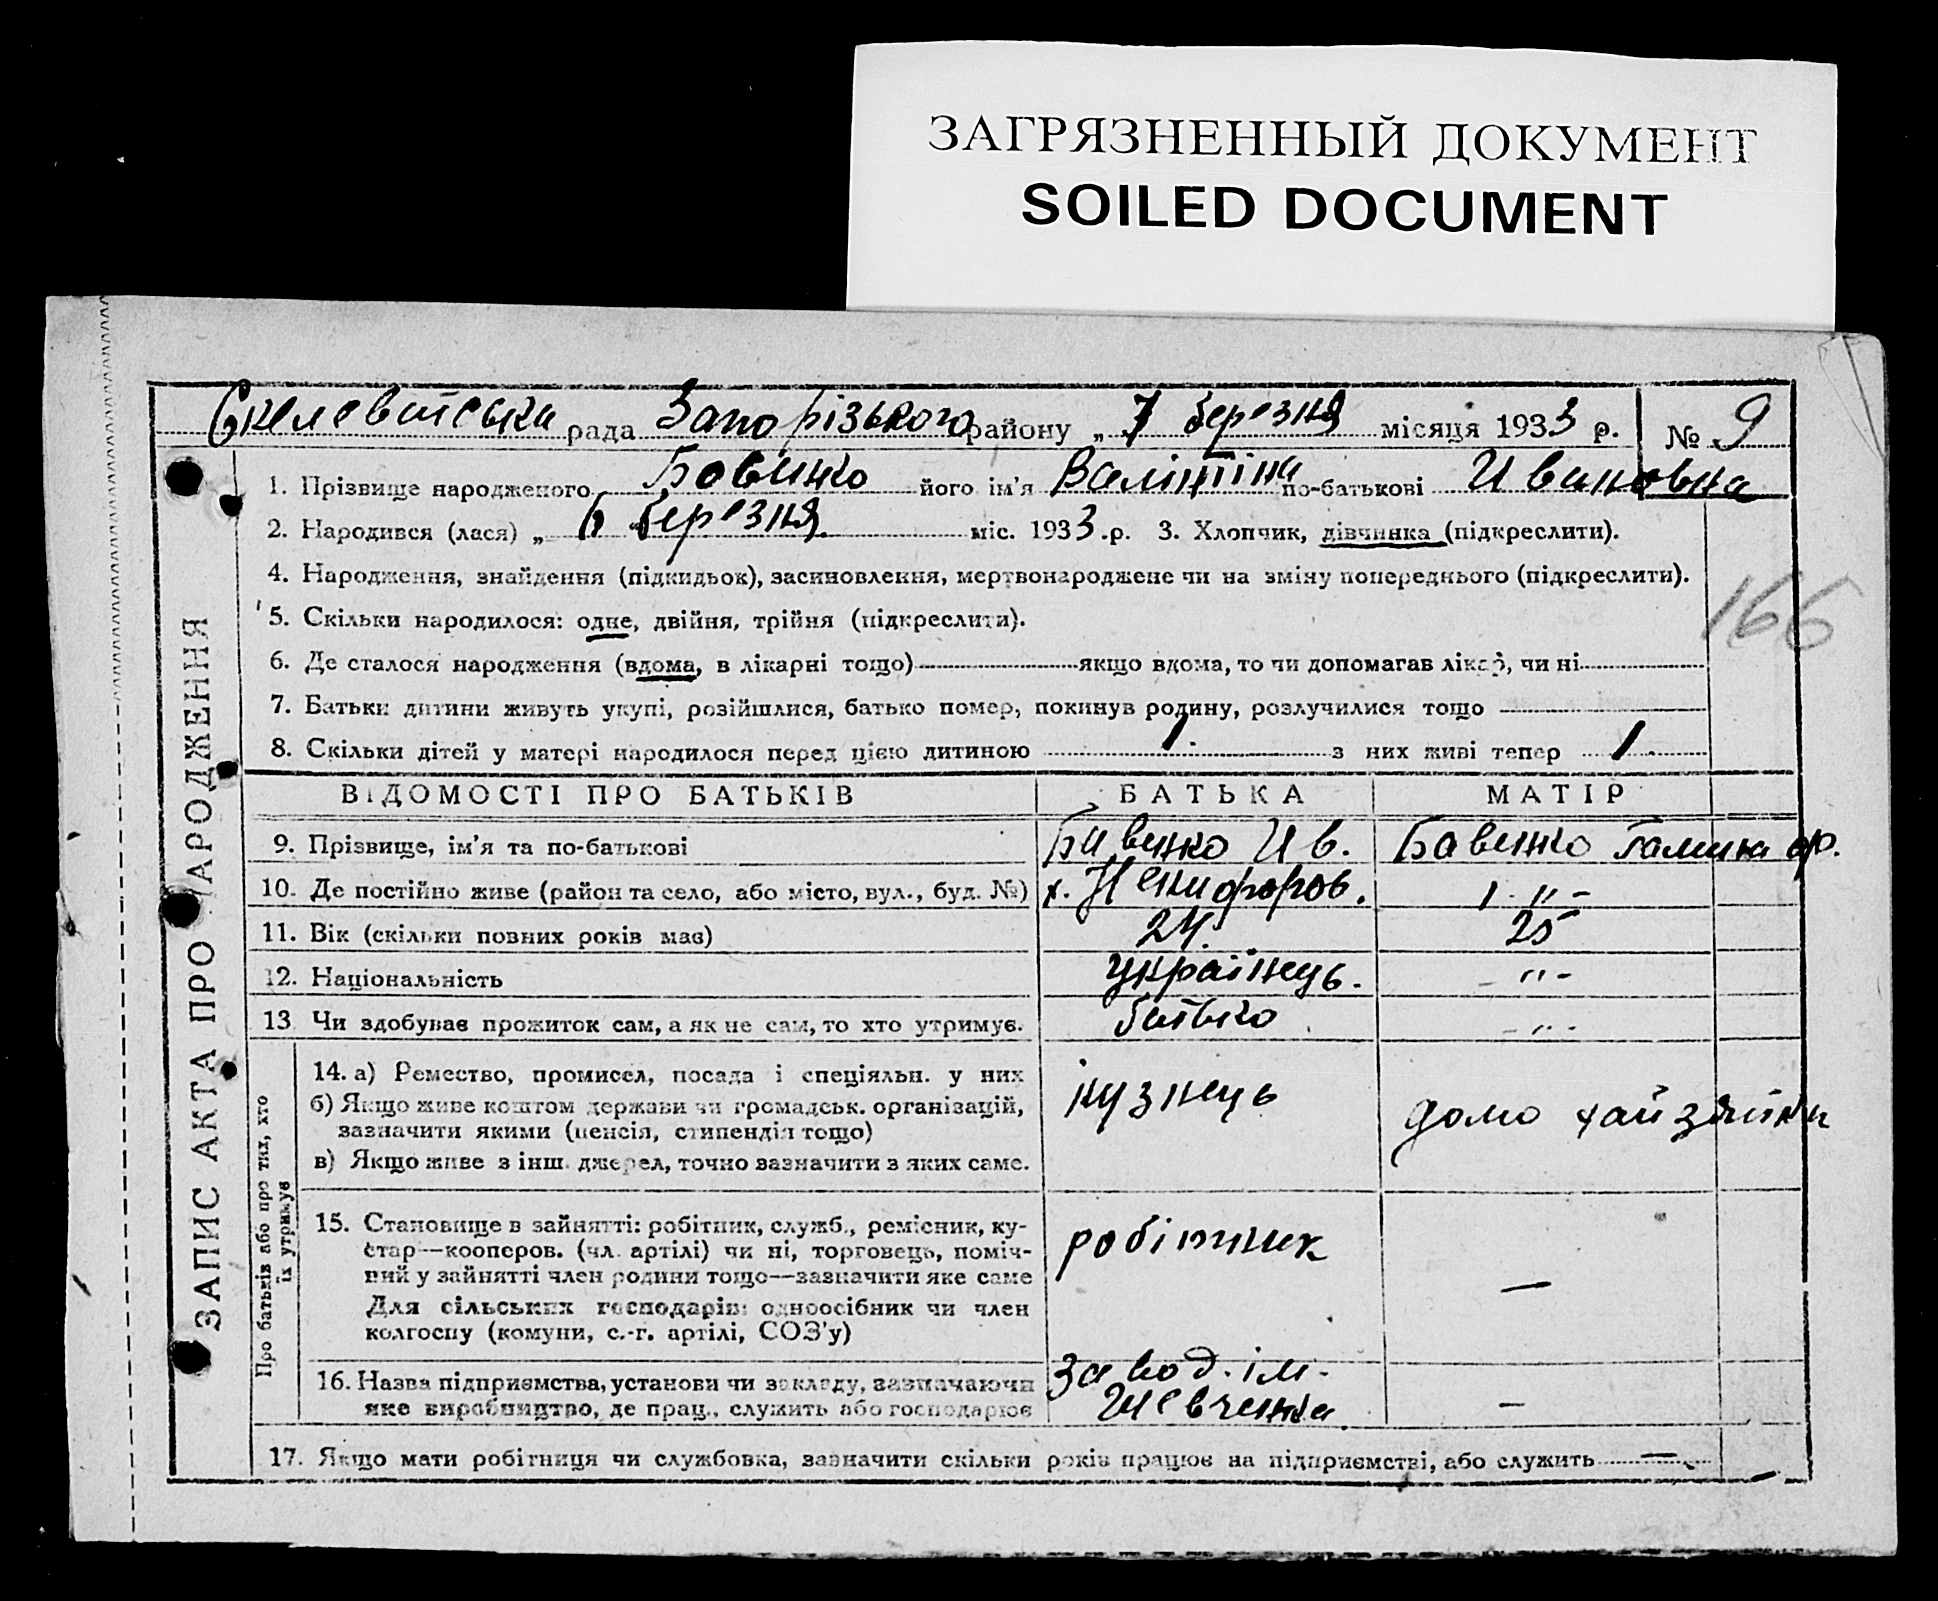 ЗАГРЯЗНЕННЫЙ ДОКУМЕНТ
SOILED DOCUMENT
Скелеватська рада Запорізького району „7 березня місяця 1933 р. № 9
1. Прізвище народженого Бовинко його ім'я Валінтіна по-батькові Ивановна
2. Народився (лася) „6 березня міс. 1933.р. 3. Хлопчик, дівчинка (підкреслити).
4. Народження, знайдення (підкидьок), засиновлення, мертвонароджене чи на зміну попереднього (підкреслити).
5. Скільки народилося: одне, двійня, трійня (підкреслити).
166
6. Де сталося народження (вдома, в лікарні тощо) якщо вдома, то чи допомагав лікар, чи ні
7. Батьки дитини живуть укупі, розійшлися, батько помер, покинув родину, розлучилися тощо
8. Скільки дітей у матері народилося перед цією дитиною 1. з них живі тепер 1.
ВІДОМОСТІ ПРО БАТЬКІВ БАТЬКА МАТІР
9. Прізвище, ім'я та по-батькові Бавенко Ив. Бавенко Галина ф.
10. Де постійно живе (район та село, або місто, вул., буд. №) х. Некифоров. -"-
11. Вік (скільки повних років має) 24. 25
12. Національність українець. -"-
13 Чи здобував прожиток сам, а як не сам, то хто утримує. батько -"-
14. а) Ремество, промисел, посада і спеціяльн. у них кузнець
б) Якщо живе коштом держави чи громадськ. організацій,
зазначити якими (пенсія, стипендія тощо) домо хайзяйка
в) Якщо живе з інш. джерел, точно зазначити з яких саме.
15. Становище в зайнятті: робітник, служб., ремісник, ку-
стар—кооперов. (чл. артілі) чи ні, торговець, поміч- робітник
ний у зайнятті член родини тощо—зазначити яке саме —
Для сільських господарів: одноосібник чи член
колгоспу (комуни, с.-г. артілі, СОЗ'у)
16. Назва підприємства, установи чи закладу, зазначаючи завод. ім.
яке виробництво, де прац., служить або господарює Шевченка —
17. Якщо мати робітниця чи службовка, зазначити скільки років працює на підприємстві, або служить —
ЗАПИС АКТА ПРО НАРОДЖЕННЯ
Про батьків або про тих, хто
їх утримує